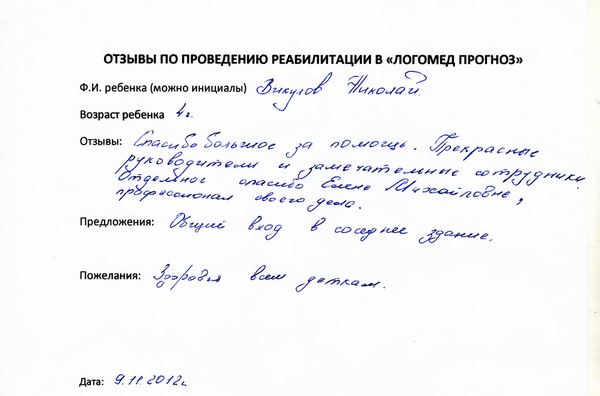 ОТЗЫВЫ ПО ПРОВЕДЕНИЮ РЕАБИЛИТАЦИИ В «ЛОГОМЕД ПРОГНОЗ»
Ф.И. ребенка (можно инициалы) Викулов Николай
Возраст ребенка 4 г.
Отзывы: Спасибо большое за помощь. Прекрасные
руководители и замечательные сотрудники.
Отдельное спасибо Елене Михайловне,
профессионал своего дела.
Предложения: Общий вход в соседнее здание.
Пожелания: Здоровья всем деткам.
Дата: 9.11.2012г.